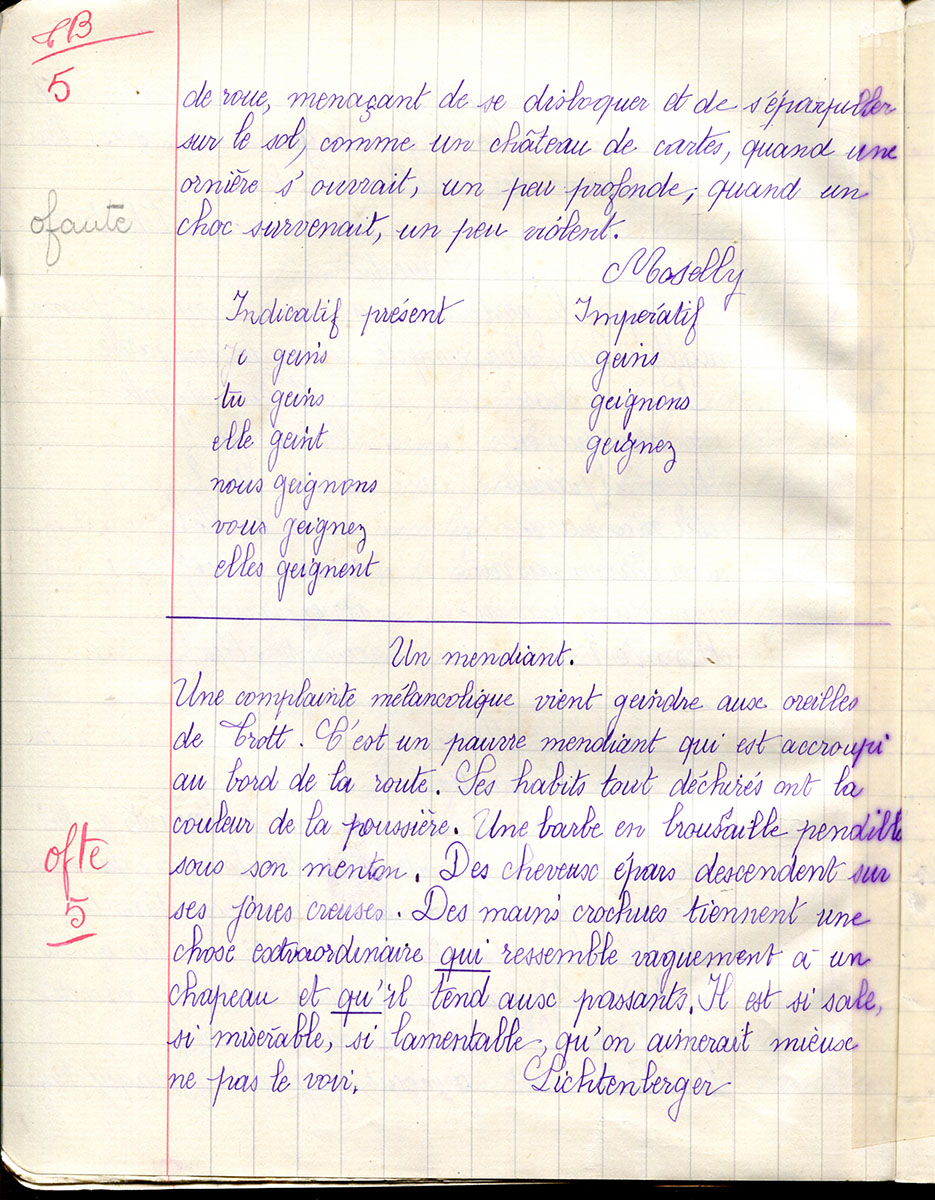 TB
5
de roue, menaçant de se disloquer et de s'éparpiller
sur le sol, comme un château de cartes, quand une
ornière s'ouvrait, un peu profonde, quand un
0 faute
choc survenait, un peu violent.
Moselly
Indicatif présent Impératif
je geins geins
tu geins geignons
elle geint geignez
nous geignons
vous geignez
elles geignent
Un mendiant.
Une complainte mélancolique vient geindre aux oreilles
de Trott. C'est un pauvre mendiant qui est accroupi
au bord de la route. Ses habits tout déchirés ont la
couleur de la poussière. Une barbe en broussaille pendille
0 fte
sous son menton. Des cheveux épars descendent sur
5
ses joues creuses. Des mains crochues tiennent une
chose extraordinaire qui ressemble vaguement à un
chapeau et qu'il tend aux passants. Il est si sale,
si misérable, si lamentable, qu'on aimerait mieux
ne pas le voir. Lichtenberger